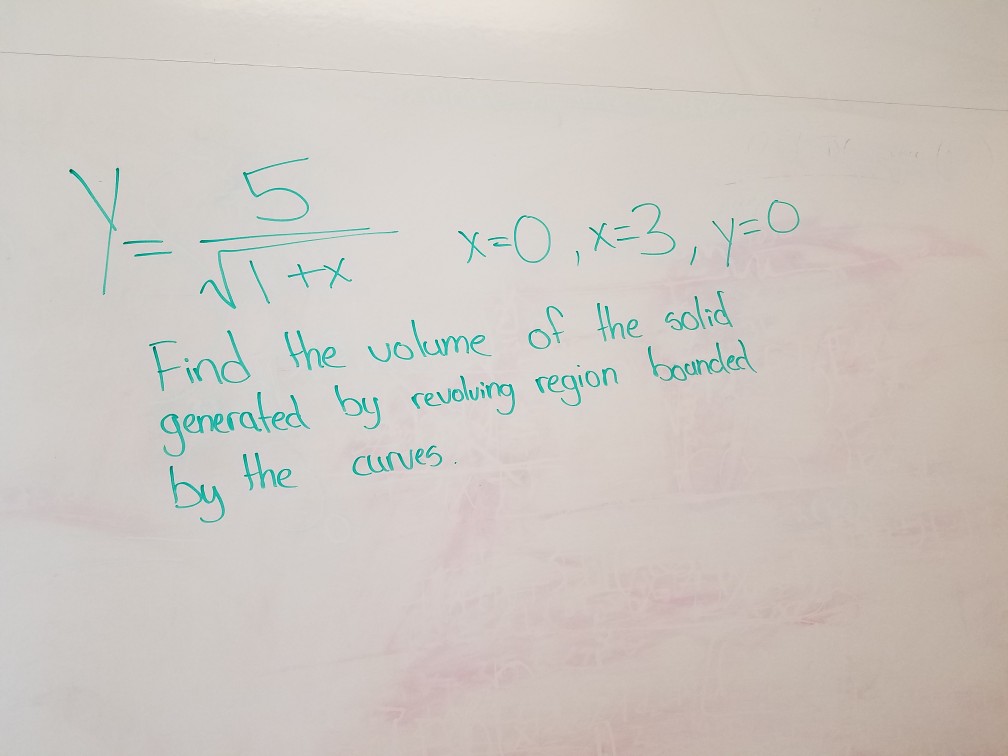 y = 5/√(1+x) x=0, x=3, y=0
Find the volume of the solid
generated by revolving region bounded
by the curves.